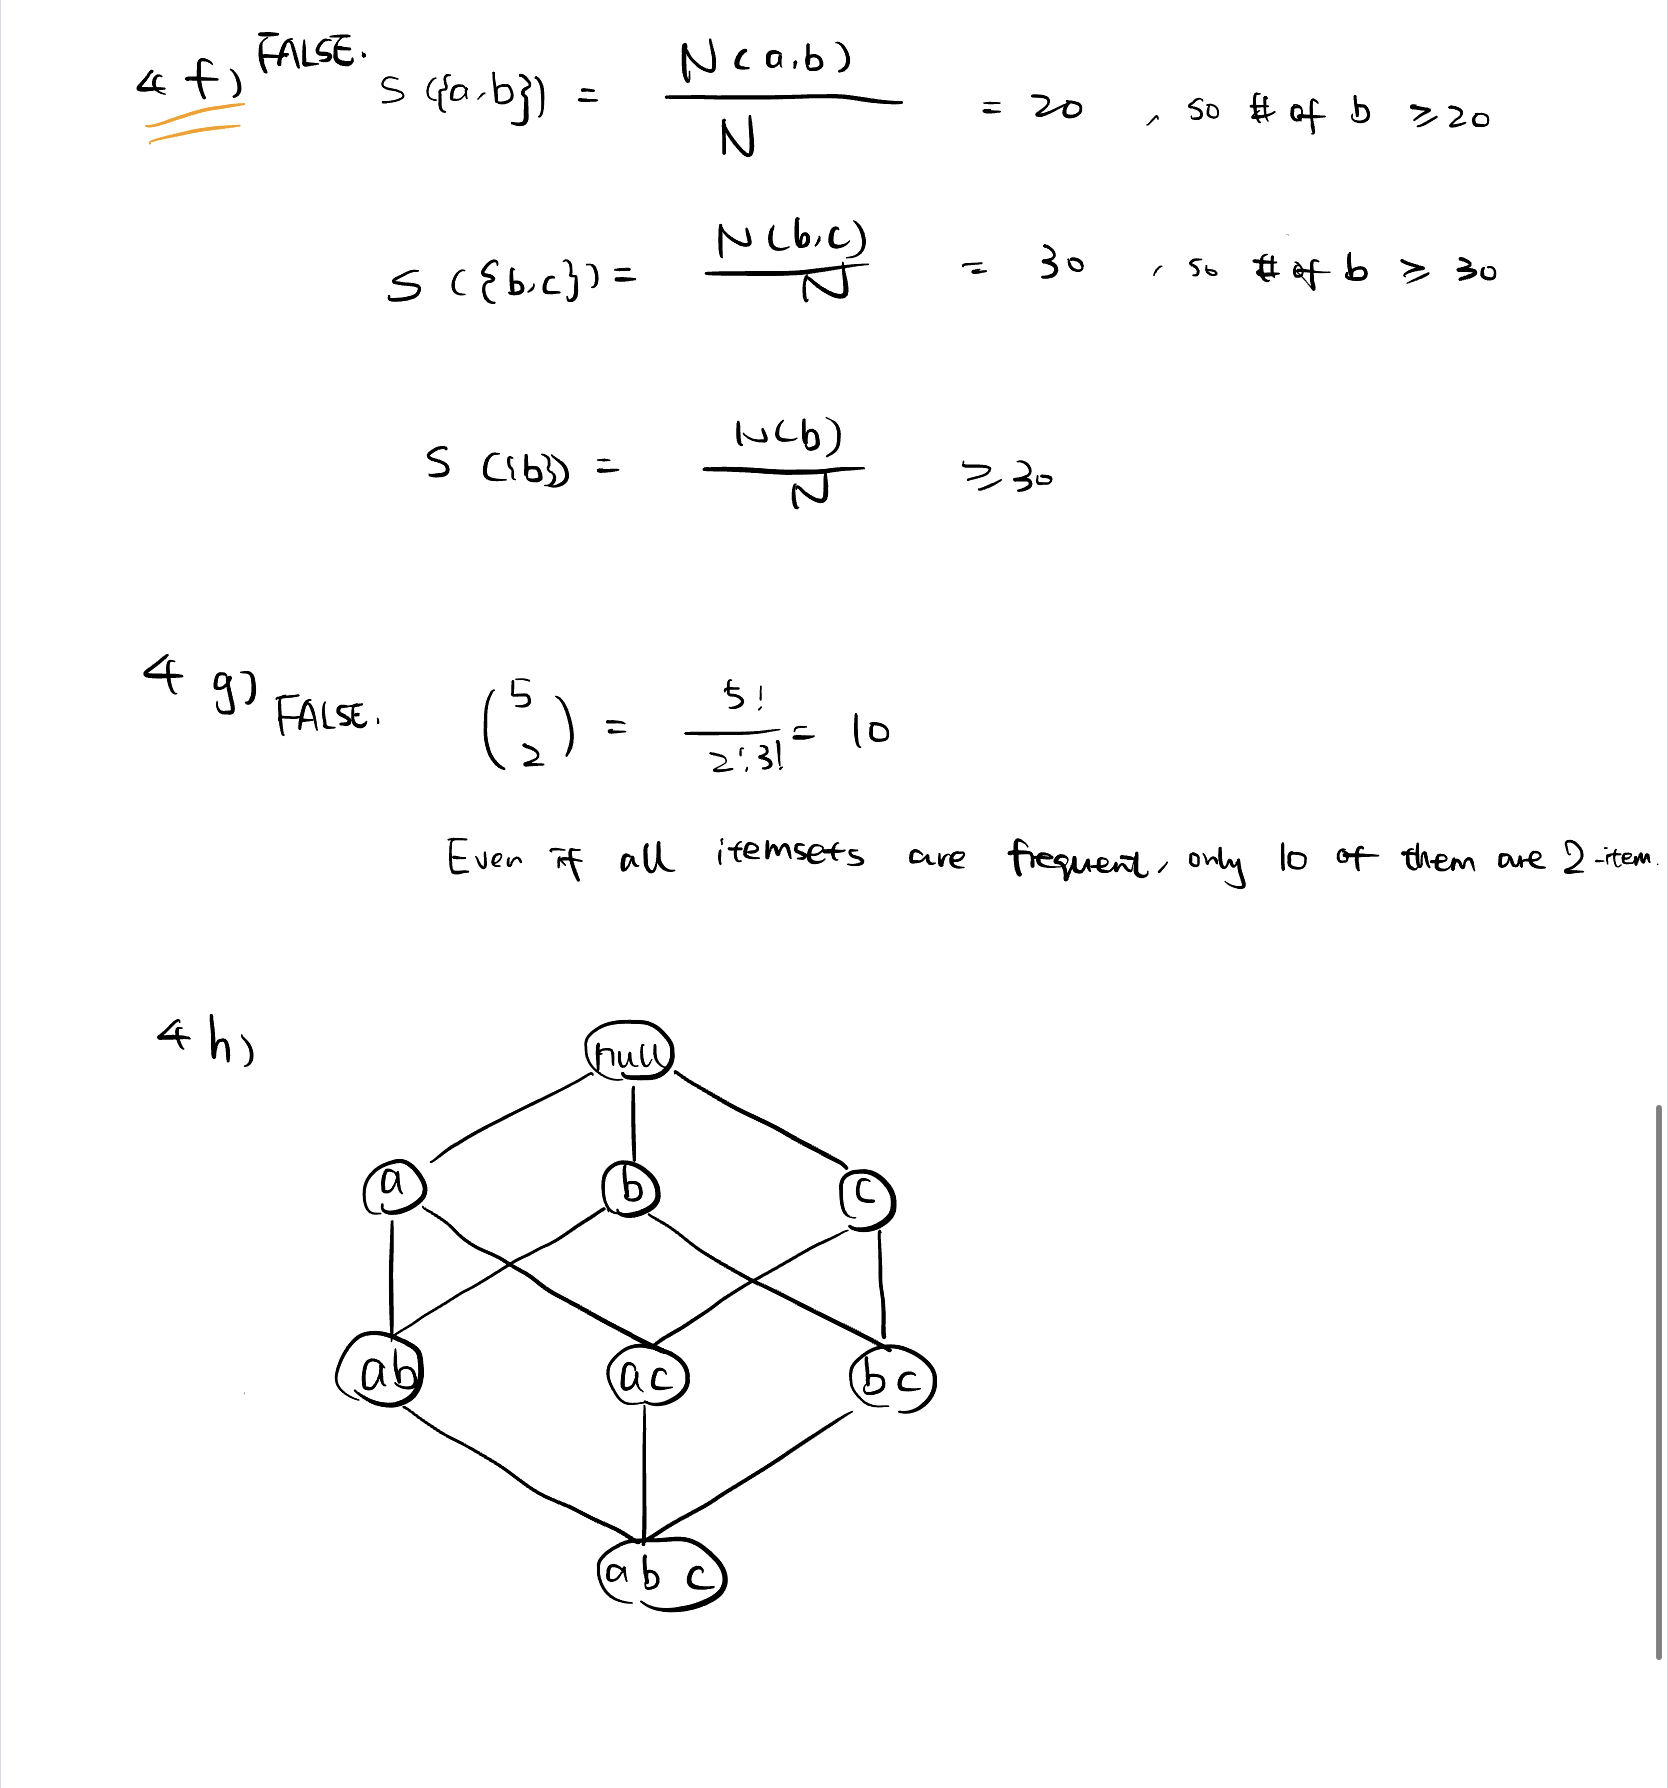 4 f) FALSE. S ({a,b}) = N(a,b) / N = 20 , so # of b ≥ 20
S ({b,c}) = N(b,c) / N = 30 , so # of b ≥ 30
S ({b}) = N(b) / N ≥ 30
4 g) FALSE. (5 2) = 5! / 2!3! = 10
Even if all itemsets are frequent, only 10 of them are 2-item.
4 h)
null
a b c
ab ac bc
abc